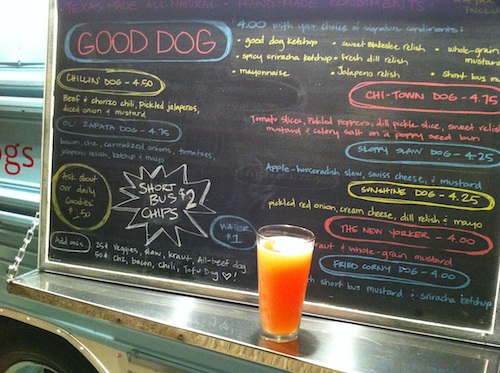 TEXAS MADE ALL NATURAL HAND-MADE CONDIMENTS
GOOD DOG
4.00 with your choice of signature condiments:
• good dog ketchup • sweet relish • whole-grain mustard
• spicy sriracha ketchup • fresh dill relish
• mayonnaise • Jalapeno relish • short bus
CHILLIN' DOG - 4.50
Beef & chorizo chili, pickled jalapenos,
diced onion & mustard
OL' ZAPATA DOG - 4.75
bacon, chz, carmelized onions, tomatoes,
jalapeno relish, ketchup & mayo
Ask about
our daily
Goodies!
$1.50
SHORT
BUS $2
CHIPS
WATER
$1
Add ons
25¢ Veggies, slaw, kraut, All-beef dog
50¢ Chz, bacon, chili, Tofu Dog !
CHI-TOWN DOG - 4.75
Tomato slices, Pickled Peppers, dill pickle slice, sweet relish
mustard & celery salt on a poppy seed bun
SLOPPY SLAW DOG - 4.25
Apple-horseradish slaw, swiss cheese, & mustard
SUNSHINE DOG - 4.25
pickled red onion, cream cheese, dill relish & mayo
THE NEW YORKER - 4.00
kraut & whole-grain mustard
FRIED CORNY DOG - 4.00
short bus mustard & sriracha ketchup
ogs